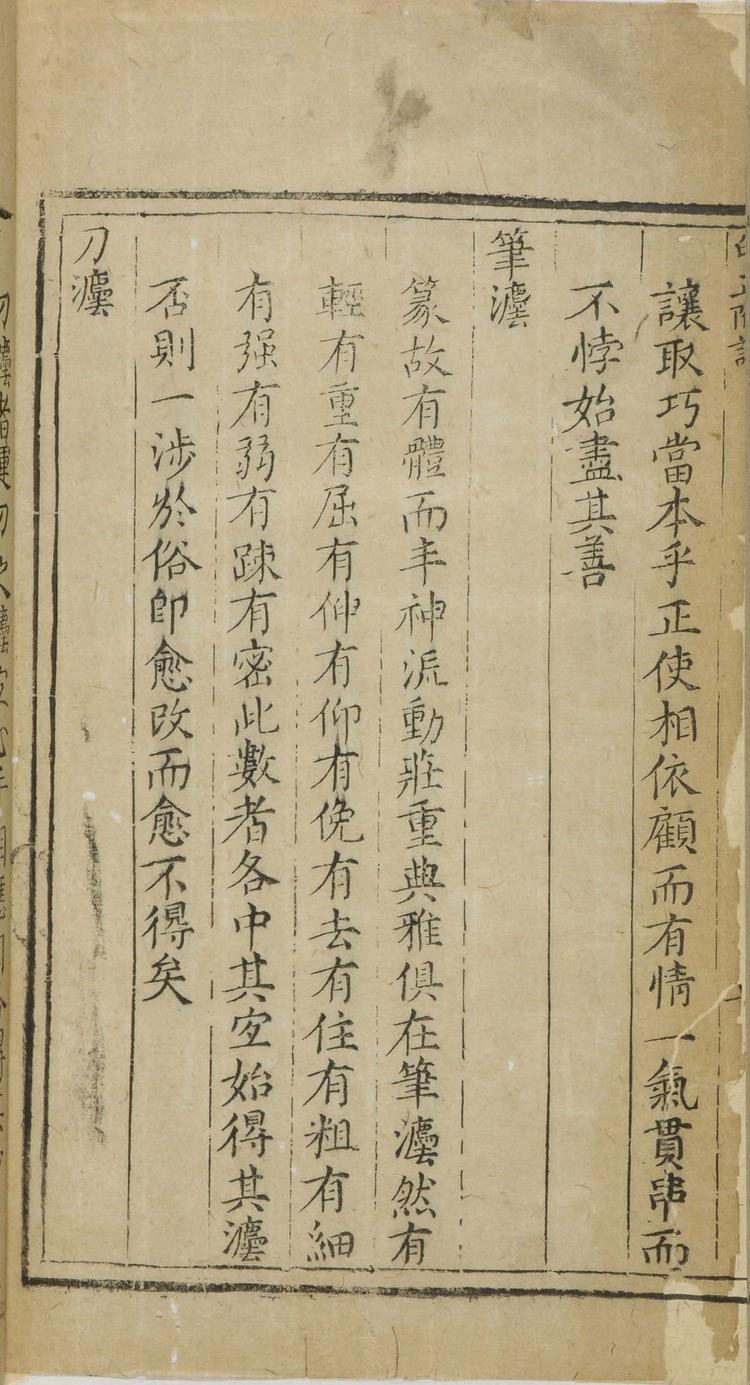 讓取巧當本乎正使相依顧而有情一氣貫串而
不悖始盡其善
筆灋
篆故有體而丰神流動莊重典雅俱在筆灋然有
輕有重有屈有伸有仰有俛有去有住有粗有細
有强有弱有踈有密此數者各中其宜始得其灋
否則一涉於俗即愈改而愈不得矣
刀灋
刀灋者運刀之灋宜心手相應